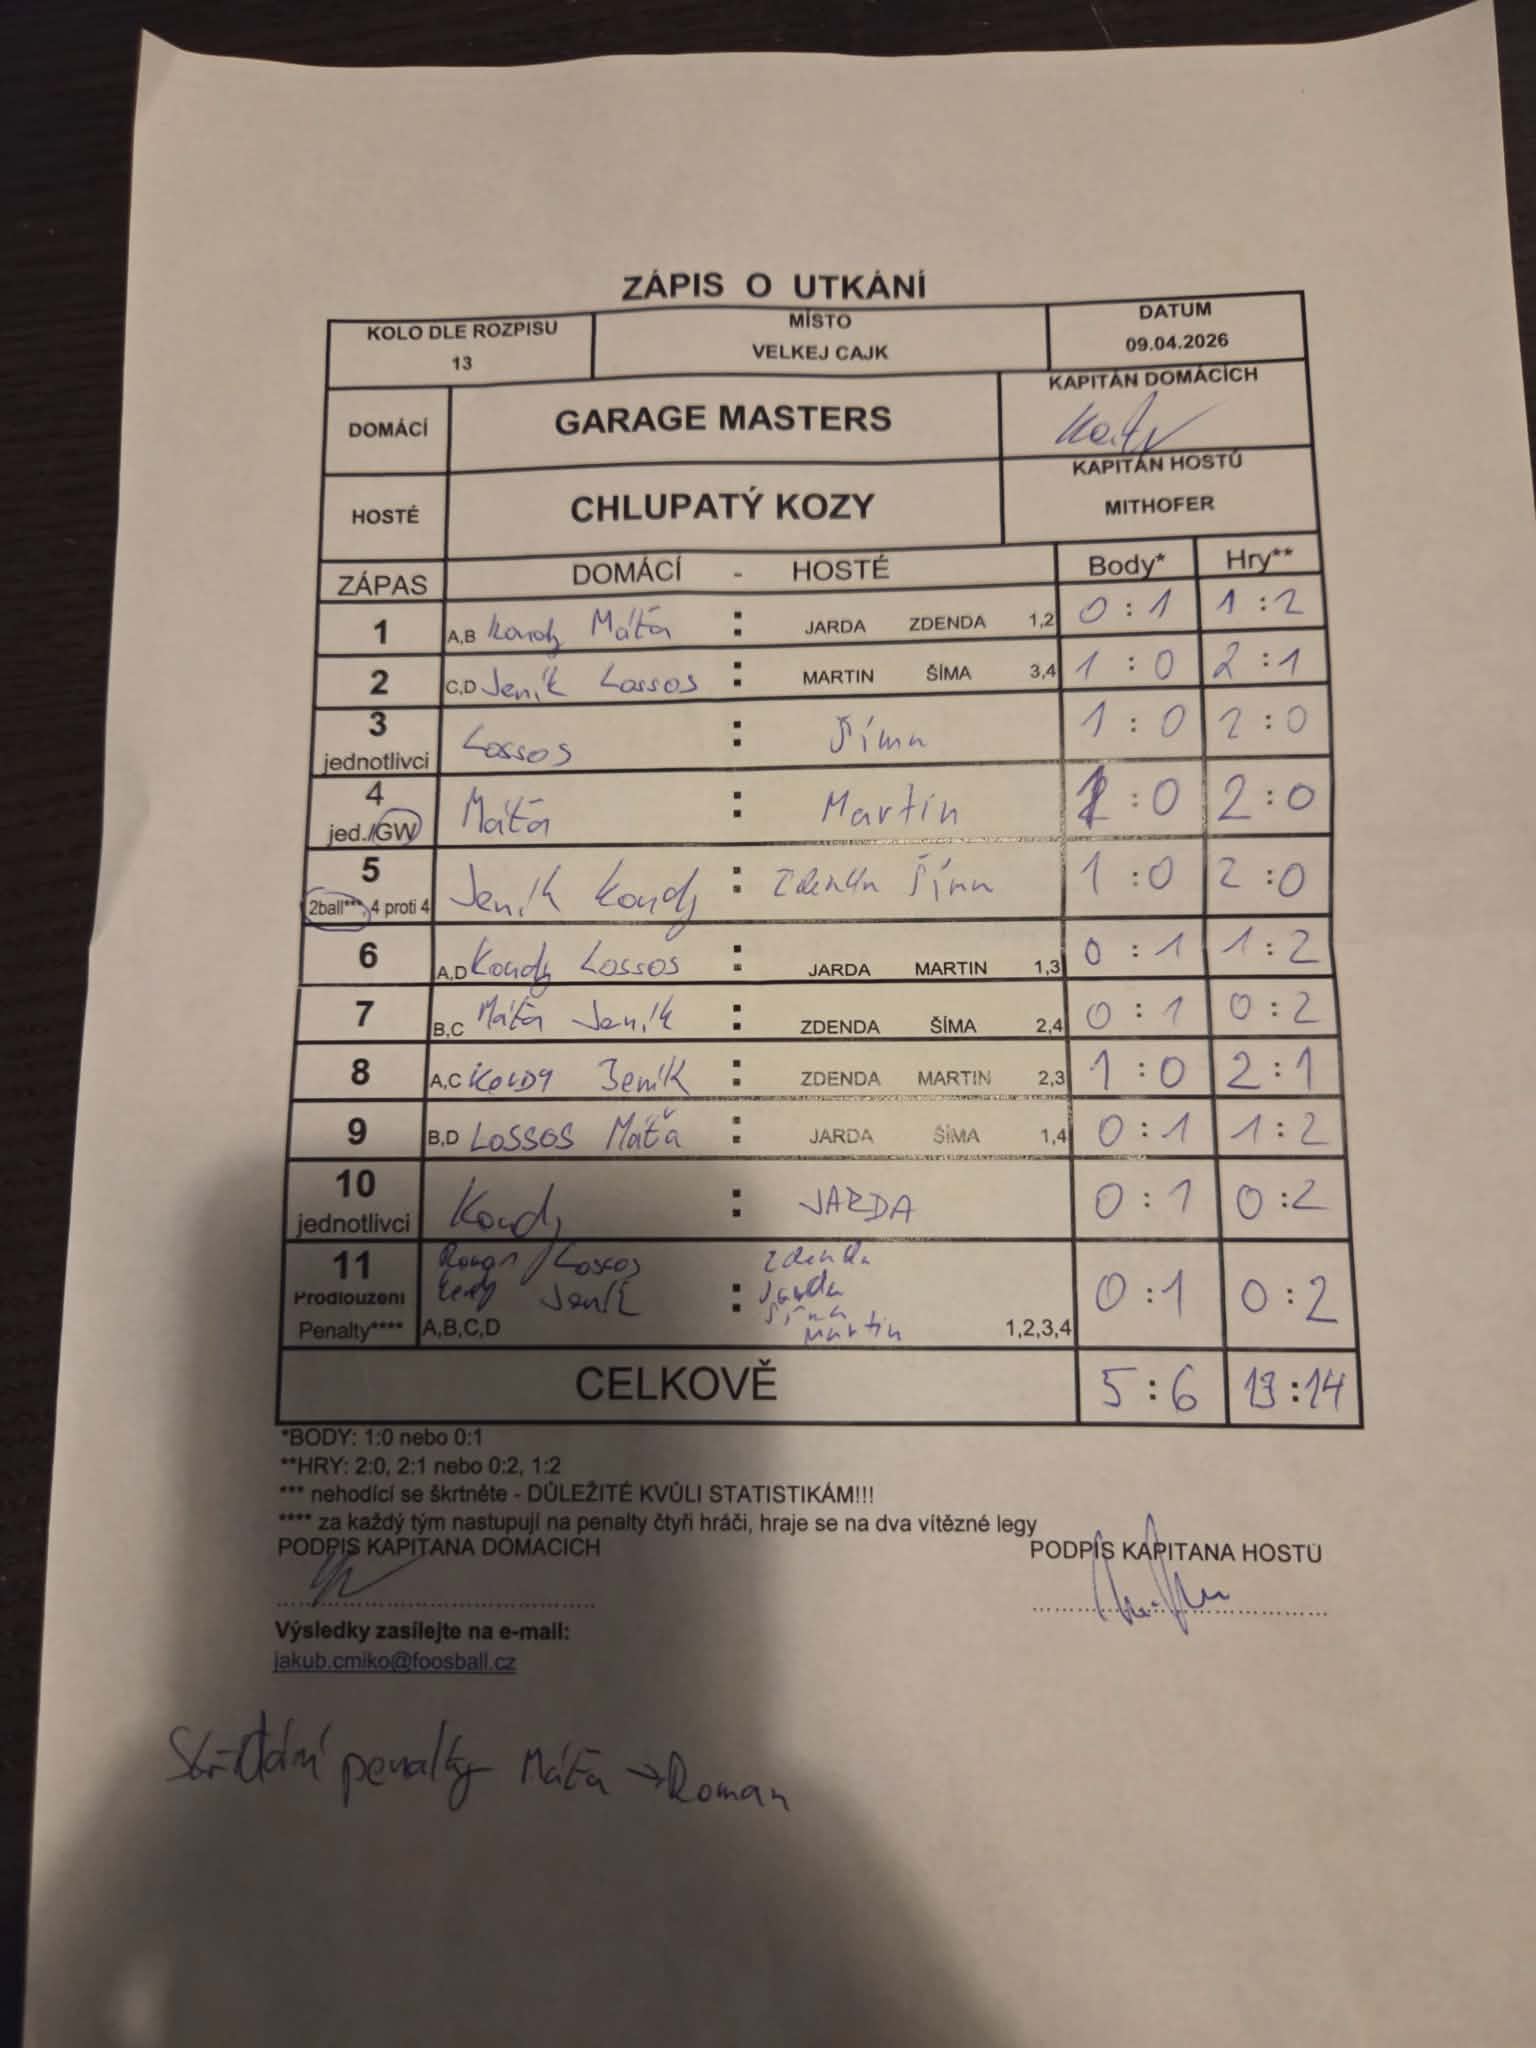 ZÁPIS O UTKÁNÍ
KOLO DLE ROZPISU
13
MÍSTO
VELKEJ CAJK
DATUM
09.04.2026
DOMÁCÍ
GARAGE MASTERS
KAPITÁN DOMÁCÍCH
HOSTÉ
CHLUPATÝ KOZY
KAPITÁN HOSTŮ
MITHOFER
ZÁPAS DOMÁCÍ - HOSTÉ Body* Hry**
1 A,B Kondy Máťa : JARDA ZDENDA 1,2 0:1 1:2
2 C,D Jeník Lossos : MARTIN ŠÍMA 3,4 1:0 2:1
3 jednotlivci Lossos : Šíma 1:0 2:0
4 jed./GW Máťa : Martin 1:0 2:0
5 2ball***, 4 proti 4 Jeník Kondy : Zdenda Šíma 1:0 2:0
6 A,D Kondy Lossos : JARDA MARTIN 1,3 0:1 1:2
7 B,C Máťa Jeník : ZDENDA ŠÍMA 2,4 0:1 0:2
8 A,C KONDY Jeník : ZDENDA MARTIN 2,3 1:0 2:1
9 B,D LOSSOS Máťa : JARDA ŠÍMA 1,4 0:1 1:2
10 jednotlivci Kondy : JARDA 0:1 0:2
11 Prodloužení Penalty**** A,B,C,D Roman Lossos Kondy Jeník : Zdenda Jarda Šíma Martin 1,2,3,4 0:1 0:2
CELKOVĚ 5:6 13:14
*BODY: 1:0 nebo 0:1
**HRY: 2:0, 2:1 nebo 0:2, 1:2
*** nehodící se škrtněte - DŮLEŽITÉ KVŮLI STATISTIKÁM!!!
**** za každý tým nastupují na penalty čtyři hráči, hraje se na dva vítězné legy
PODPIS KAPITÁNA DOMÁCÍCH
PODPIS KAPITÁNA HOSTŮ
Výsledky zasílejte na e-mail:
jakub.cmiko@foosball.cz
Střídání penalty Máťa → Roman